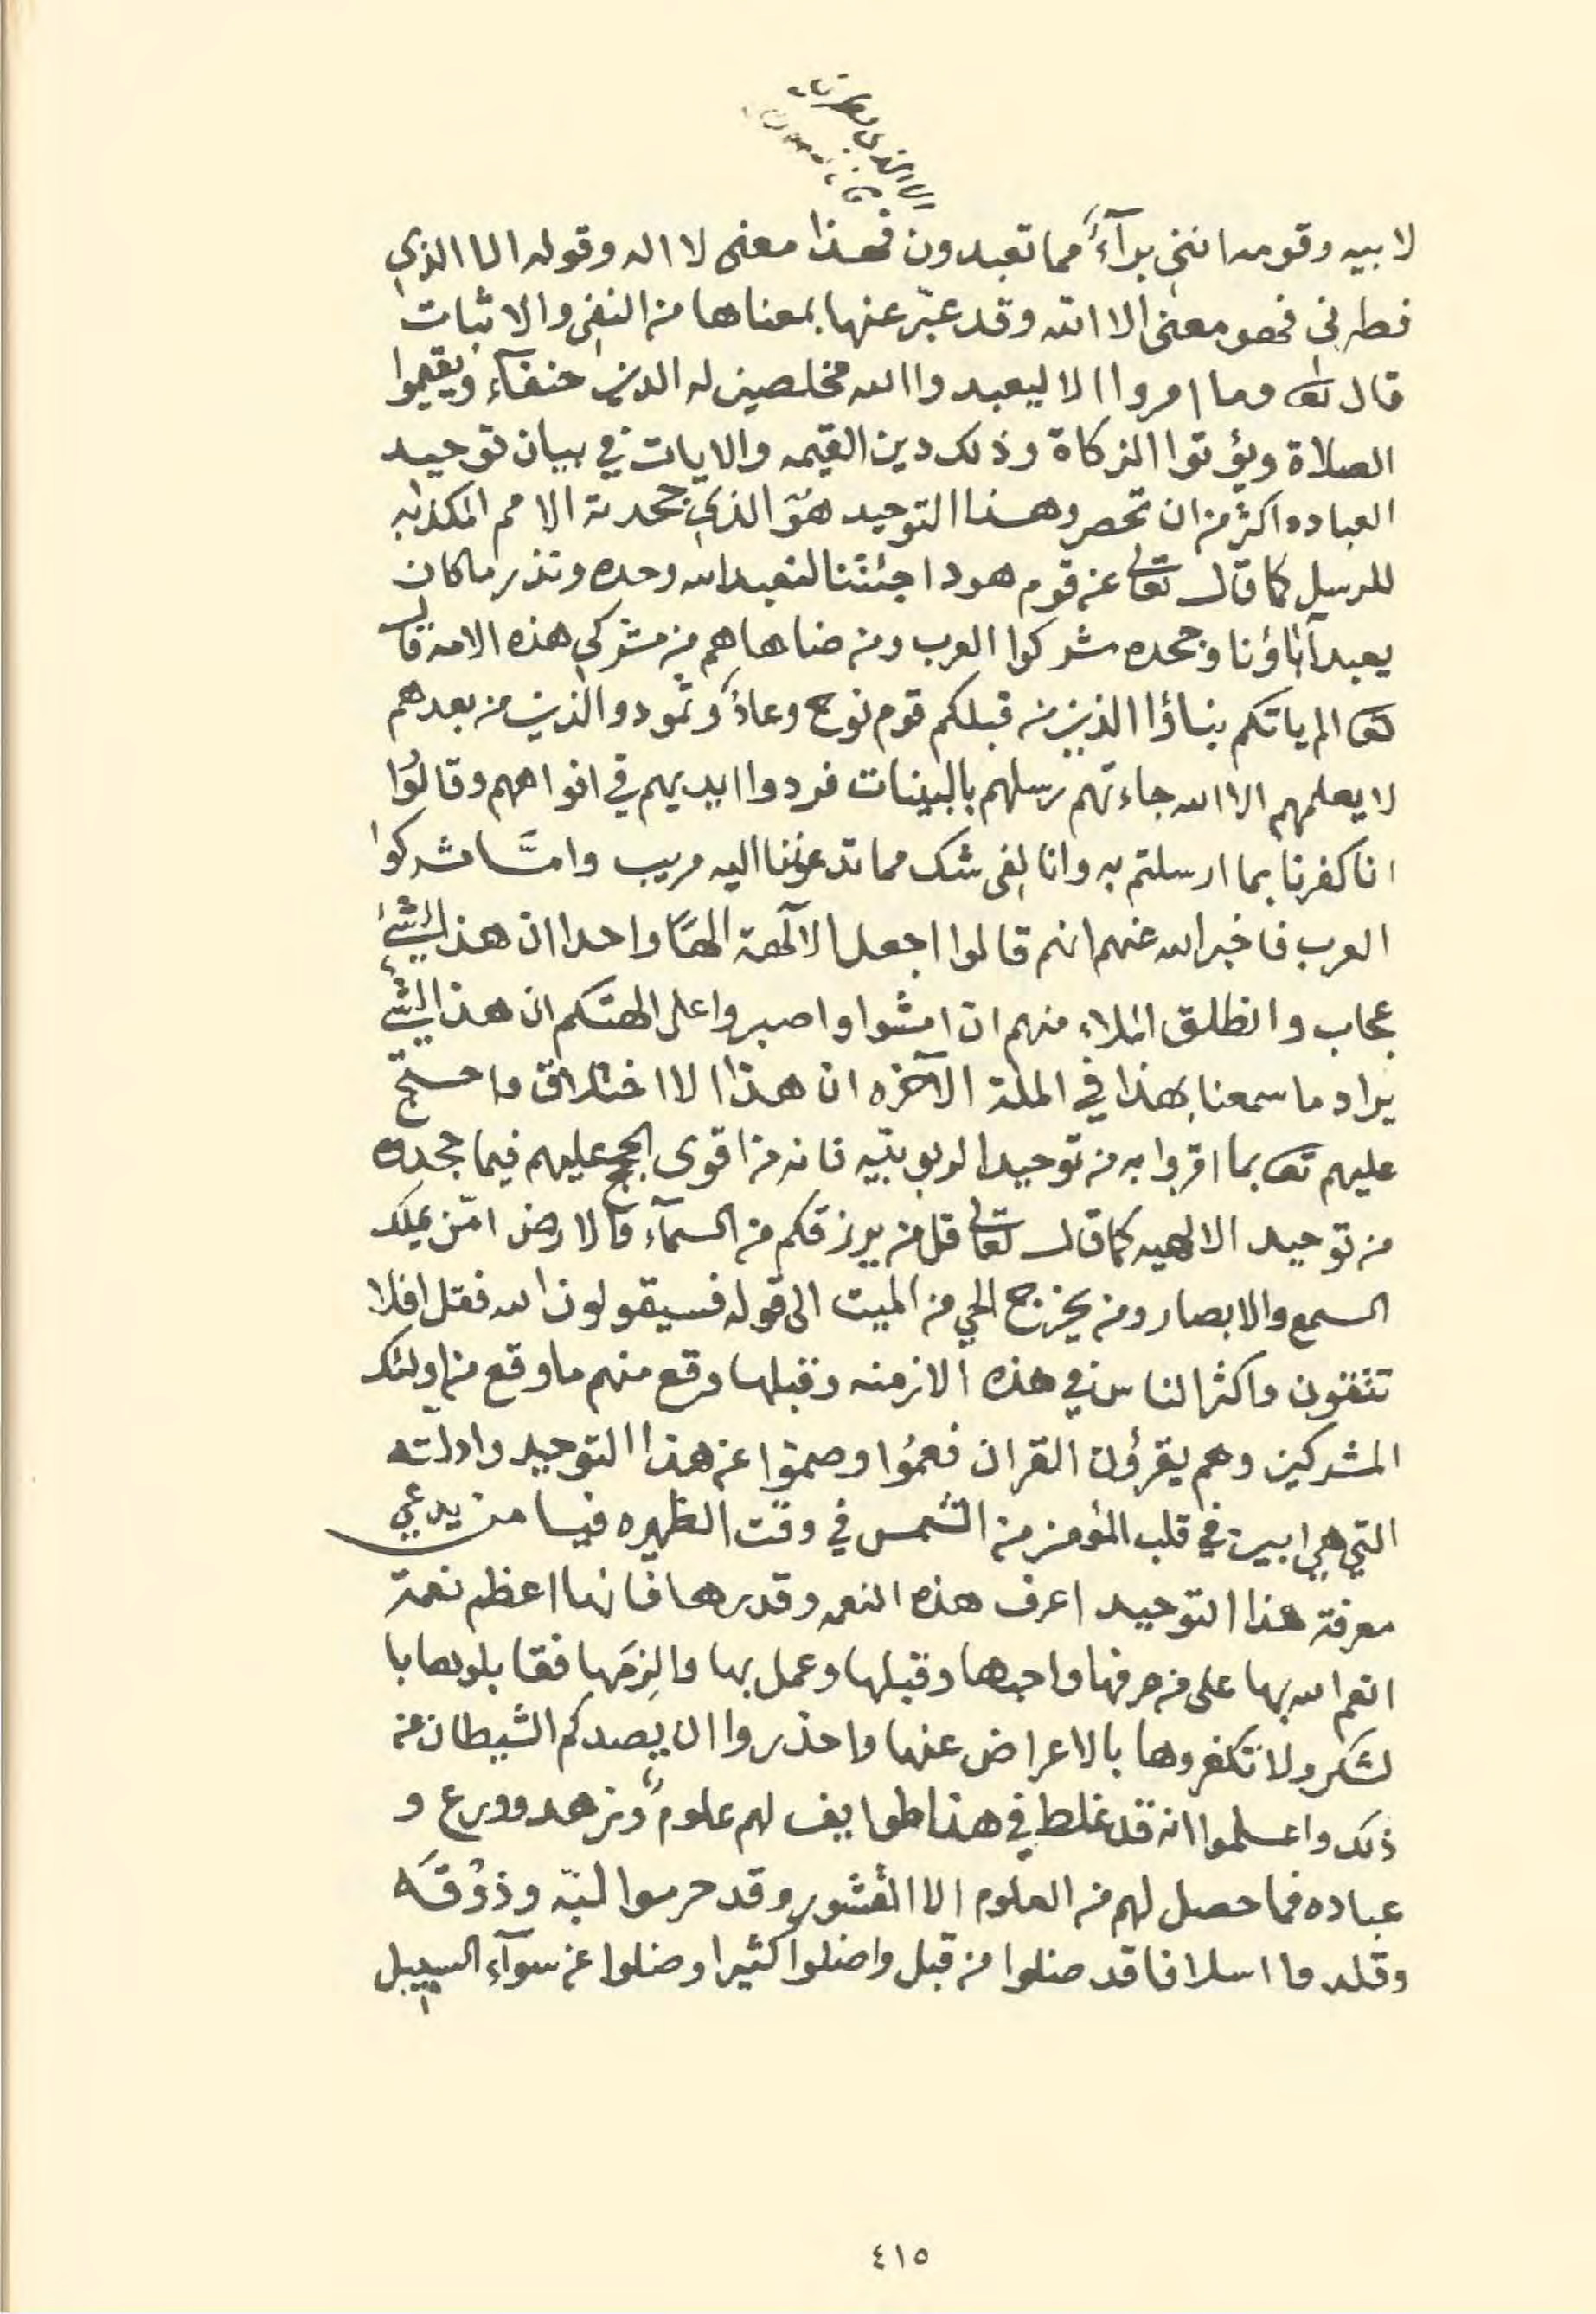 الا الذي فطرني
لابيه وقومه انني برآءٌ مما تعبدون فهذا معنى لا اله وقوله الا الذي
فطرني فهو معنى الا الله وقد عبّر عنها بمعناها من النفي والاثبات
قال تعا وما امروا الا ليعبدوا الله مخلصين له الدين حنفآء ويقيموا
الصلاة ويؤتوا الزكاة وذلك دين القيمه والايات في بيان توحيد
العباده اكثر من ان تحصر وهذا التوحيد هوَ الذي جحدته الامم المكذبه
للرسل كما قال تعالى عن قوم هود اجئتنا لنعبد الله وحده ونذر ما كان
يعبد آباؤنا وجحده مشركوا العرب ومن ضاهاهم من مشركي هذه الامه قال
تعا الم ياتكم نباؤا الذين من قبلكم قوم نوح وعادٌ وثمود والذين من بعدهم
لا يعلمهم الا الله جاءتهم رسلهم بالبينات فردوا ايديهم في افواههم وقالُوا
انا كفرنا بما ارسلتم به وانا لفي شك مما تدعوننا اليه مريب وامَّا مشركوا
العرب فاخبر الله عنهم انهم قالوا اجعل الآلهة الهًا واحدا ان هذا لشيءٌ
عجاب وانطلق الملاء منهم ان امشوا واصبروا على الهتكم ان هذا لشيءٌ
يراد ما سمعنا بهذا في الملة الآخره ان هذا الا اختلاق واحتج
عليهم تعا بما اقروا به من توحيد الربوبيّه فانه من اقوى الحجج عليهم فيما جحدوه
من توحيد الالهيه كما قال تعالى قل من يرزقكم من السمآء والارض امّن يملك
السمع والابصار ومن يخرج الحي من الميت الى قوله فسيقولون الله فقل افلا
تتقون واكثر الناس في هذه الازمنه وقبلها وقع منهم ما وقع من اولئك
المشركين وهم يقرؤن القران فعمُوا وصموا عن هذا التوحيد وادلته
التي هي ابين في قلب المؤمن من الشمس في وقت الظهيره فيا من يدعي
معرفة هذا التوحيد اعرف هذه النعمه وقدرها فانها اعظم نعمة
انعم الله بها على من عرفها واحبها وقبلها وعمل بها والزمَها فقابلوها با
لشكر ولا تكفروها بالاعراض عنها واحذروا ان يصدكم الشيطان عن
ذلك واعلموا انه قد غلط في هذا طوايف لهم علومٌ وزهد وورع و
عباده فما حصل لهم من العلوم الا القشور وقد حرموا لبّه وذوْقَه
وقلدوا اسلافا قد ضلوا من قبل واضلوا كثيرا وضلوا عن سوآء السبيل
٤١٥